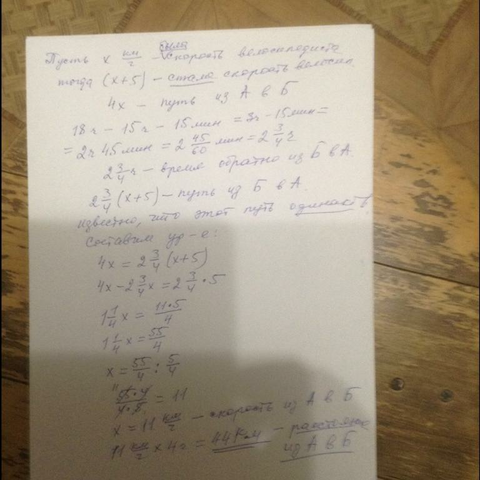 была
Пусть x км/ч - скорость велосипедиста
тогда (x+5) - стала скорость велосип.
4x - путь из А в Б
18ч - 15ч - 15мин = 3ч - 15мин =
= 2ч 45мин = 2 45/60 мин = 2 3/4 ч
2 3/4 ч - время обратно из Б в А.
2 3/4 (x+5) - путь из Б в А.
известно, что этот путь одинаков
Составим ур-е:
4x = 2 3/4 (x+5)
4x - 2 3/4 x = 2 3/4 · 5
1 1/4 x = 11·5/4
1 1/4 x = 55/4
x = 55/4 : 5/4
= 11
x = 11 км/ч - скорость из А в Б
11 км/ч × 4ч = 44 км - расстояние
из А в Б